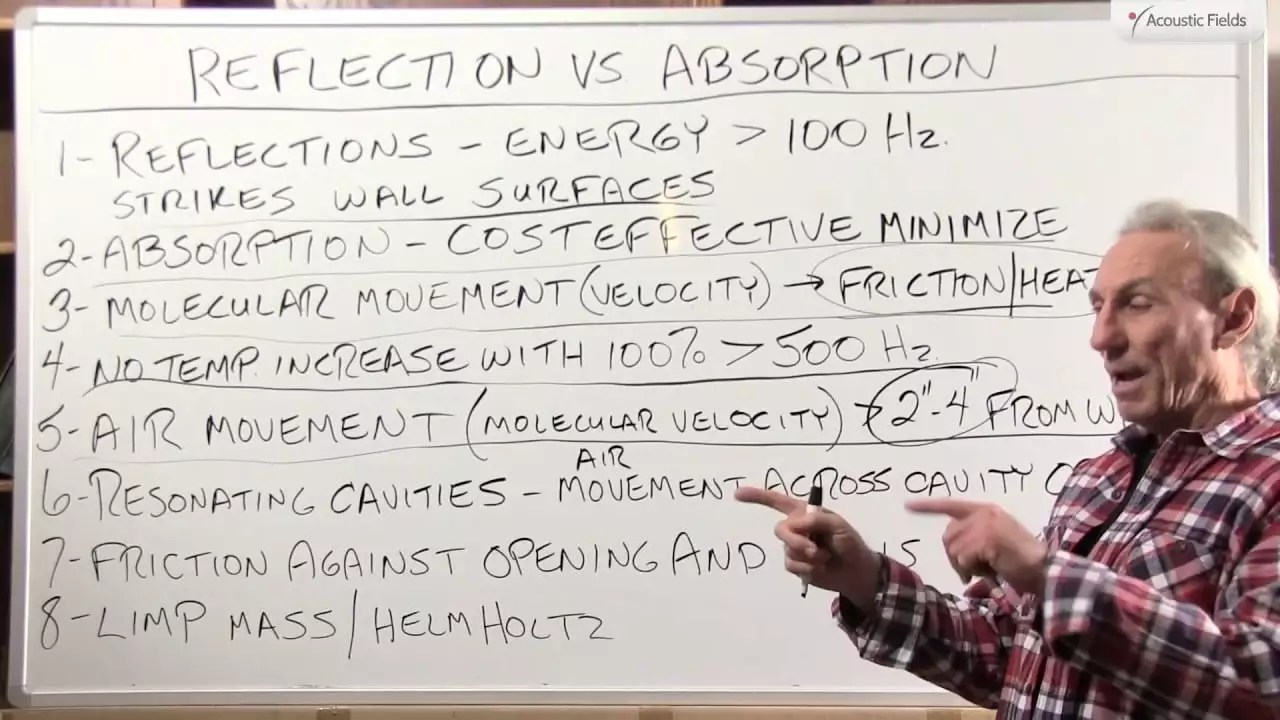 Acoustic Fields
REFLECTION VS. ABSORPTION
1- REFLECTIONS - ENERGY > 100 Hz.
STRIKES WALL SURFACES
2- ABSORPTION - COST EFFECTIVE MINIMIZE
3- MOLECULAR MOVEMENT (VELOCITY) → FRICTION/HEAT
4- NO TEMP. INCREASE WITH 100% > 500 Hz.
5- AIR MOVEMENT (MOLECULAR VELOCITY) → 2"-4" FROM
6- RESONATING CAVITIES - AIR MOVEMENT ACROSS CAVITY
7- FRICTION AGAINST OPENING AND
8- LIMP MASS/HELMHOLTZ